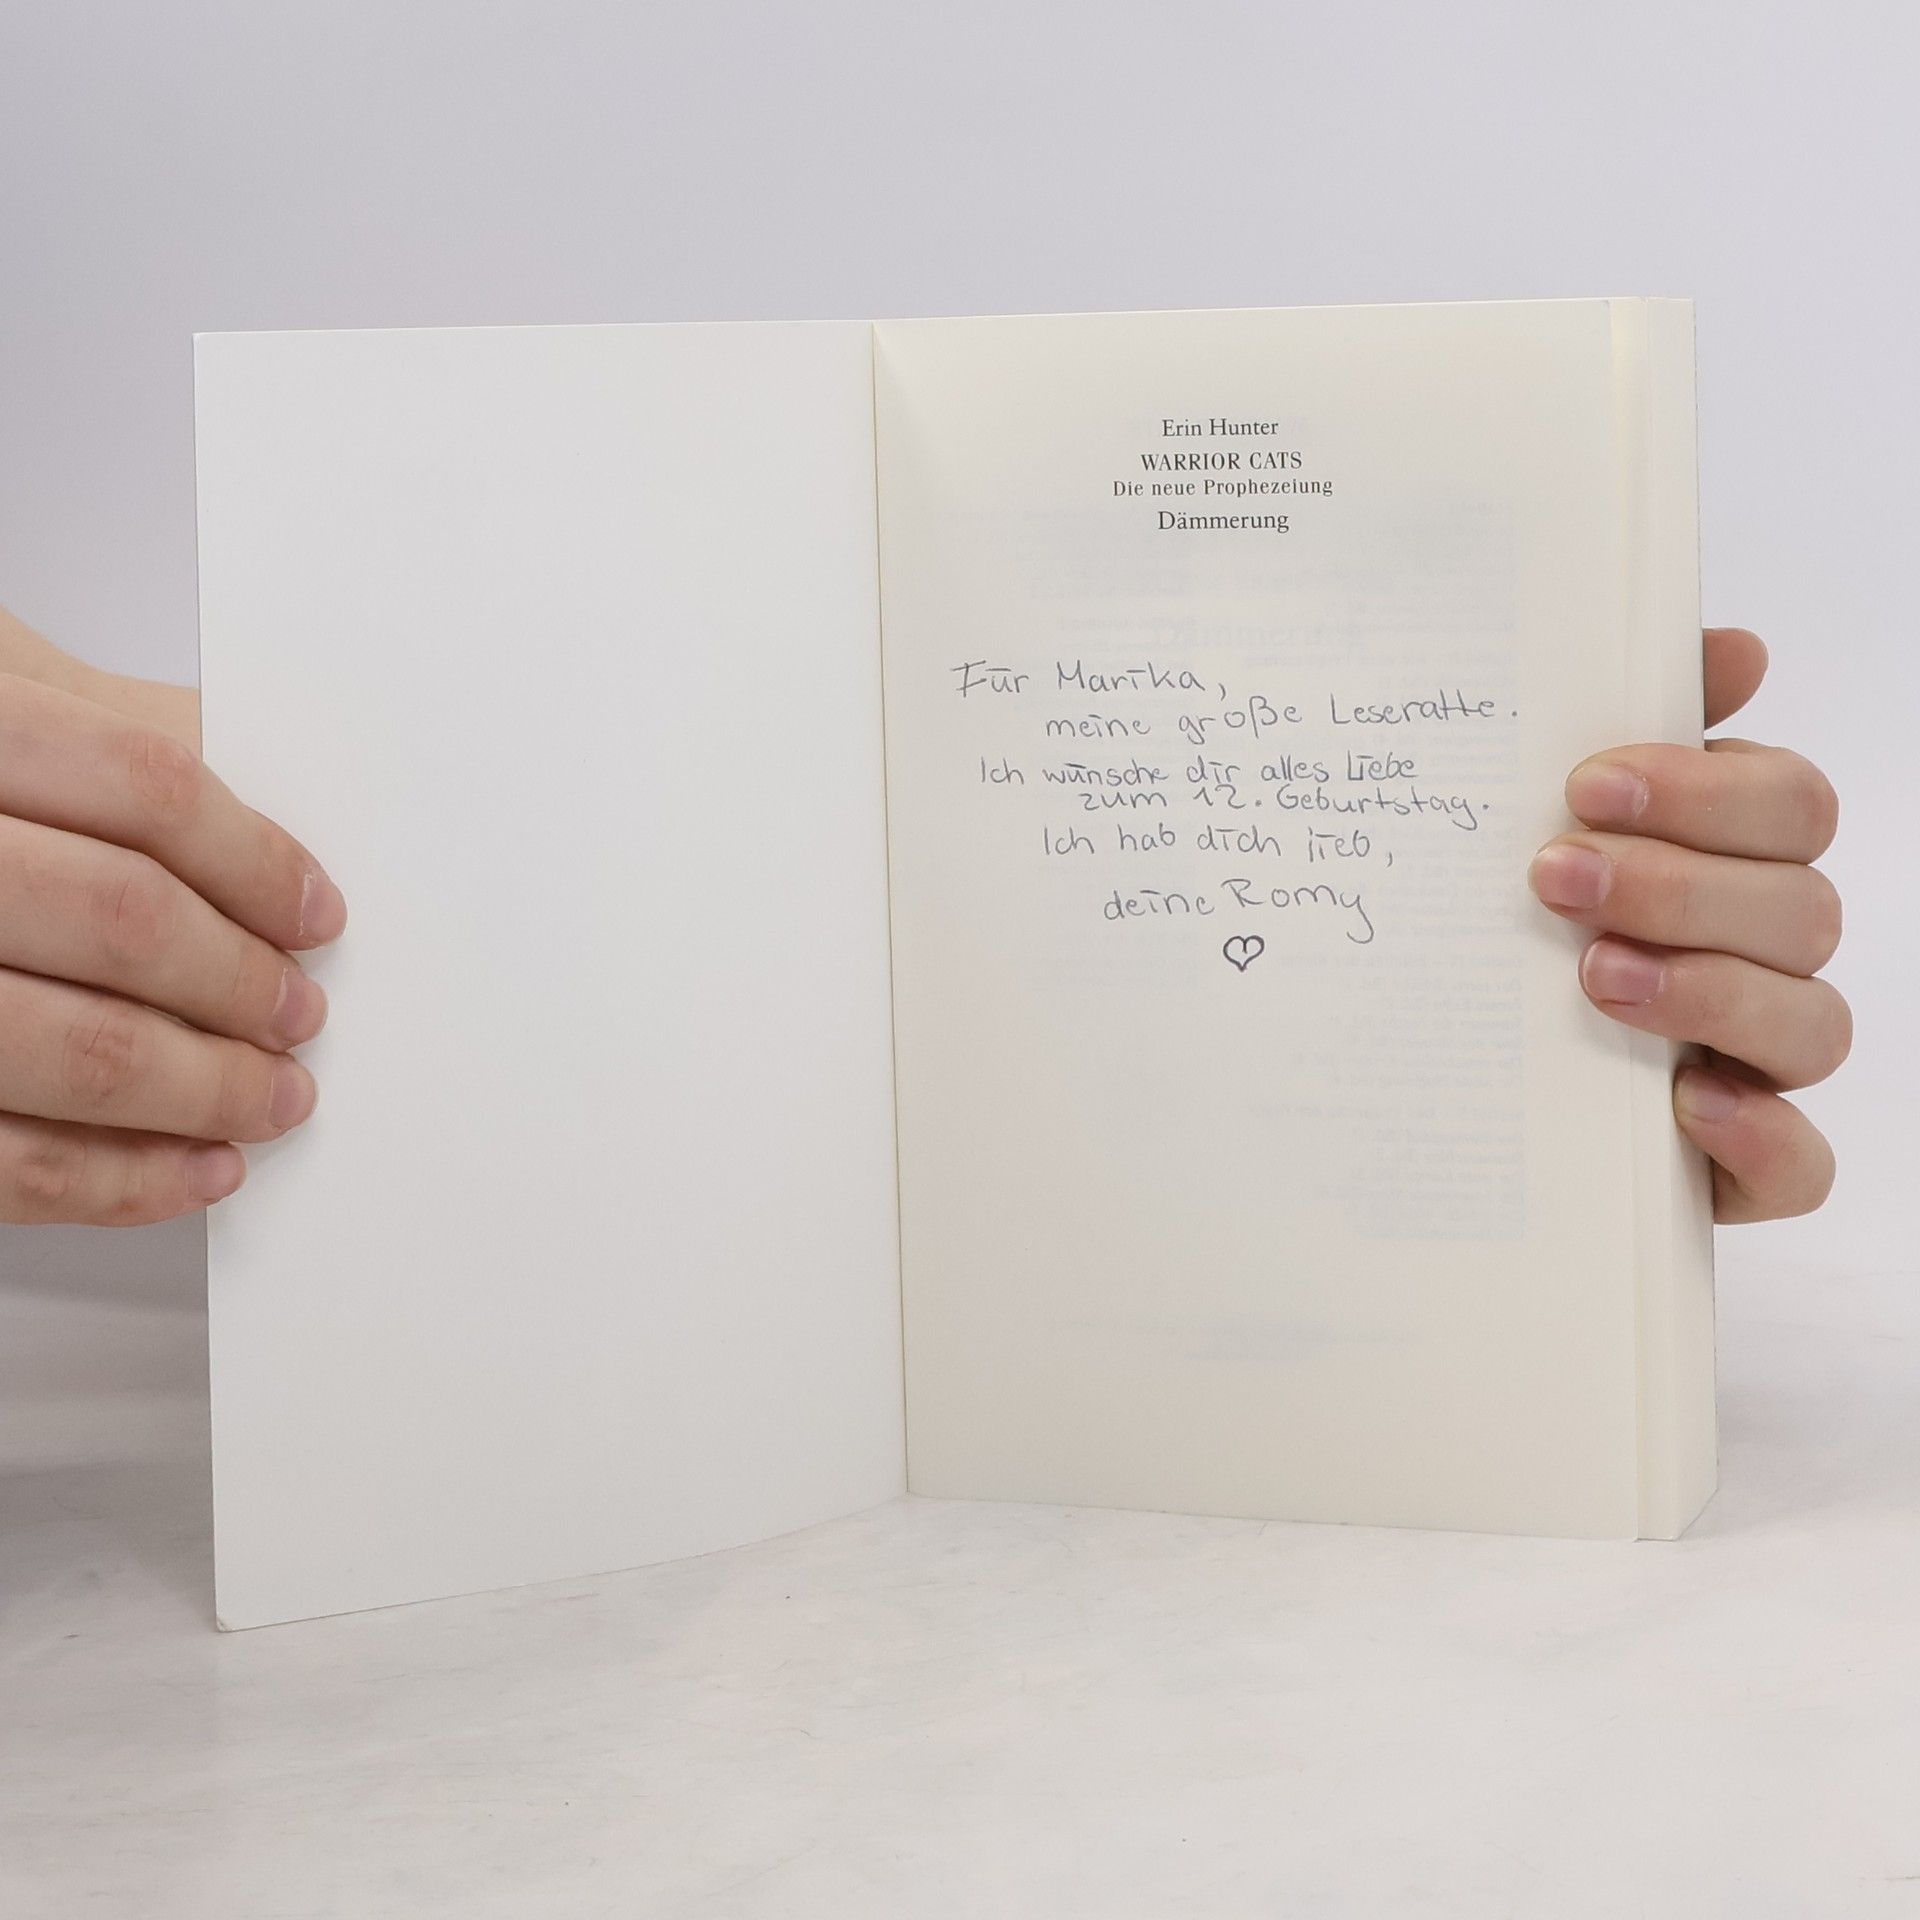 Erin Hunter
WARRIOR CATS
Die neue Prophezeiung
Dämmerung
Für Marika,
meine große Leseratte.
Ich wünsche dir alles Liebe
zum 12. Geburtstag.
Ich hab dich lieb,
deine Romy